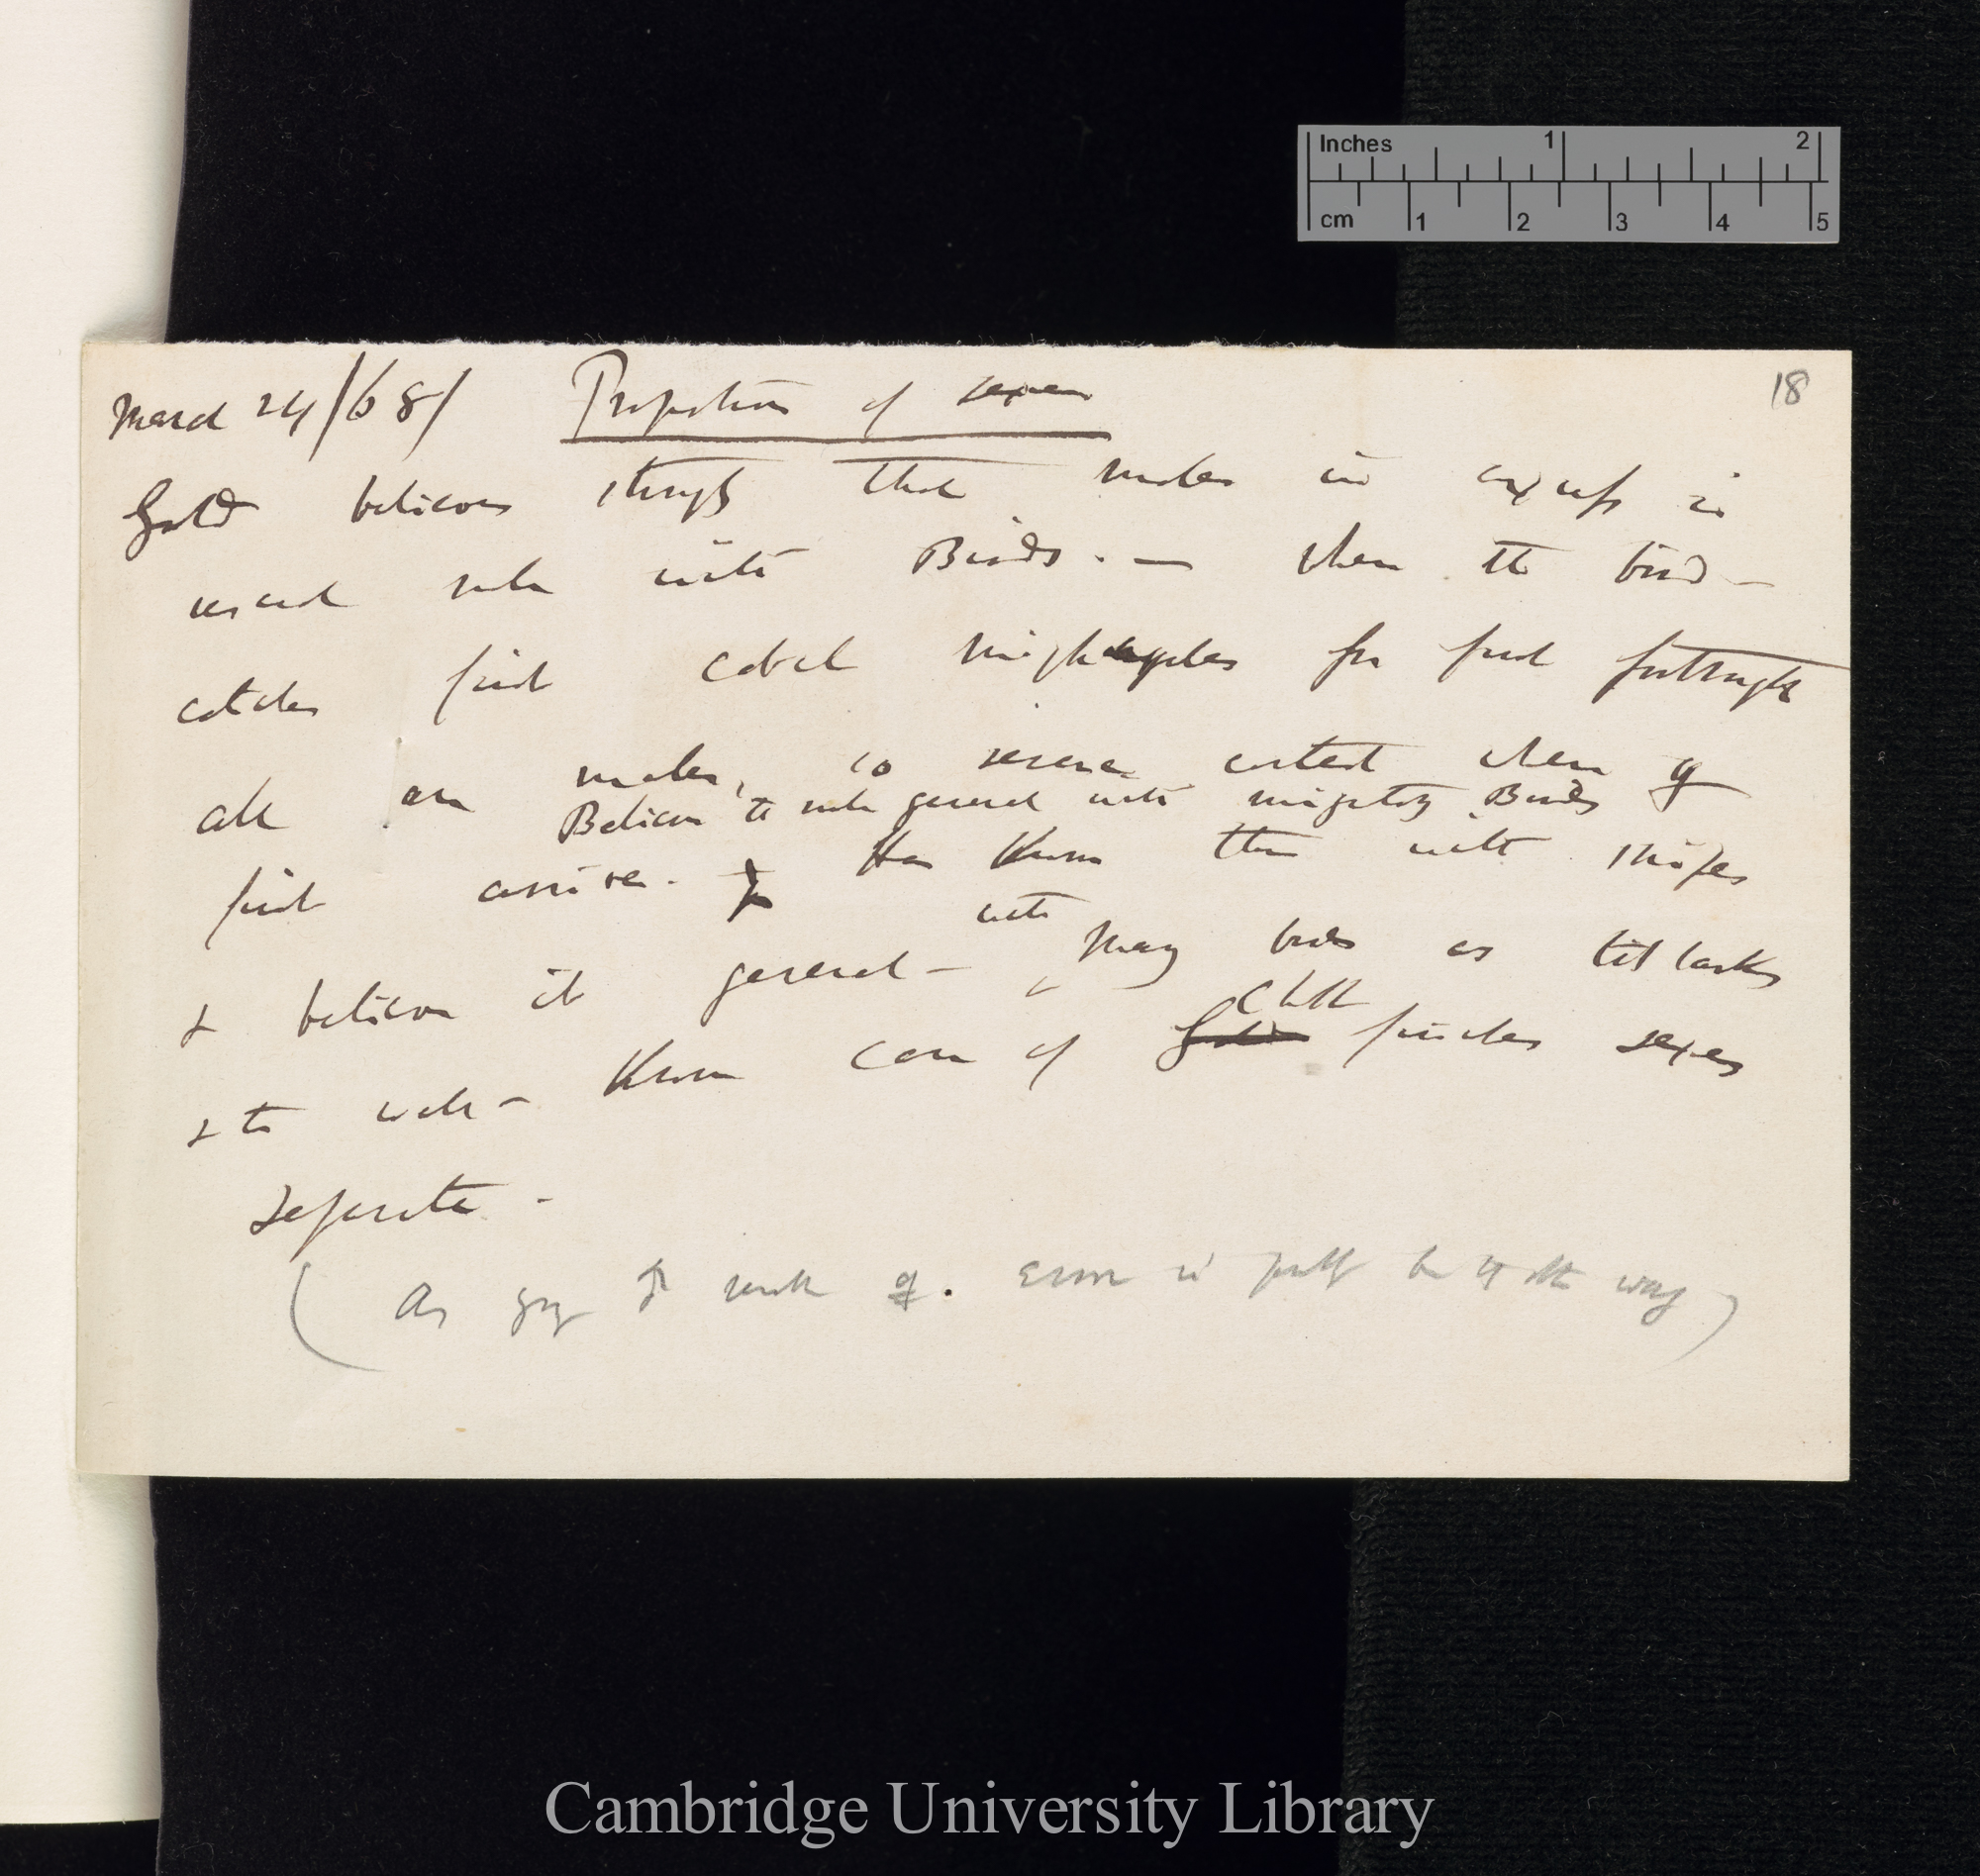 Inches 1 2
cm 1 2 3 4 5
18
March 24/68/ Proportion of sexes
Gould believes strongly that males in excess is
usual rule with Birds. — When the bird-
catches first catch nightingales for first fortnight
all are males, so severe contest when ♀
Believes the rule general with migratory Birds
first arrive. Has known this with snipes
& believes it general — with many birds as titlarks
& to — Known case of Gold Chaff finches sexes
separate —
( As young ♂ ♀. error is be the way )
Cambridge University Library